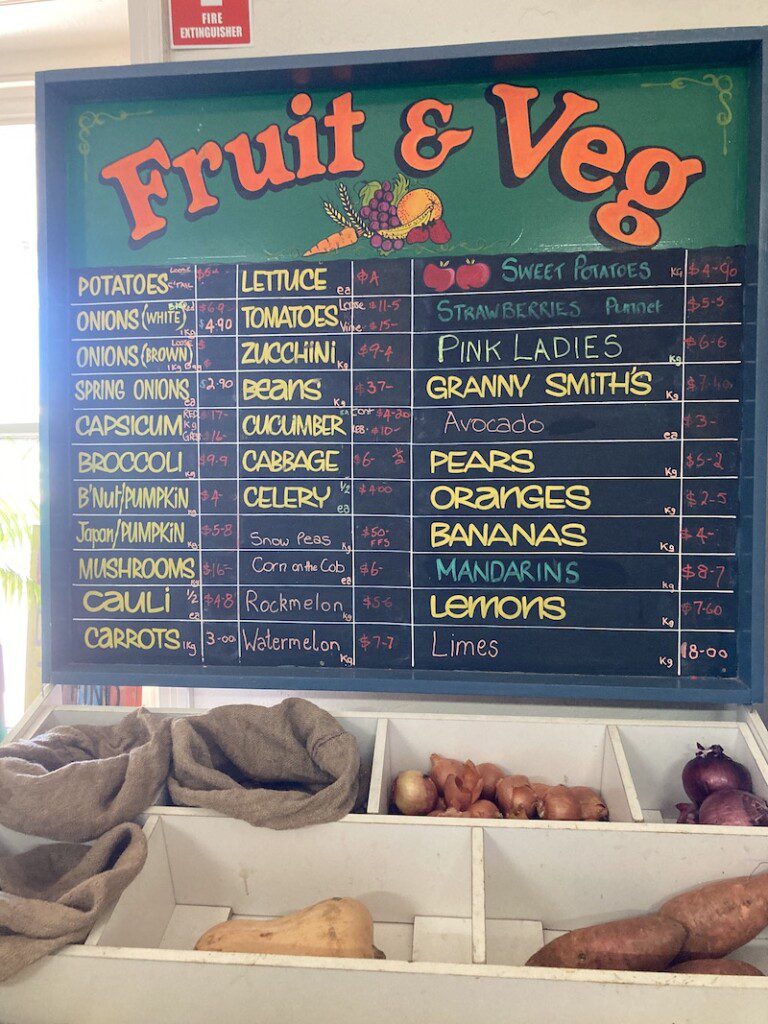 FIRE
EXTINGUISHER
Fruit & Veg
POTATOES LOOSE $5-
ONIONS (WHITE) 1Kg $6-9 $4.90
ONIONS (BROWN) LOOSE 1Kg $
SPRING ONIONS ea $2.90
CAPSICUM RED Kg $17- GRE $16-
BROCCOLI Kg $9.9
B'Nut/PUMPKIN Kg $4-
Japan/PUMPKIN Kg $5-8
MUSHROOMS Kg $16-
CAULI 1/2 ea $4-8
CARROTS 1Kg 3-00
LETTUCE ea $4
TOMATOES Loose $11-5 Vine $15-
ZUCCHINI Kg $9-4
Beans Kg $37-
CUCUMBER EA CONT $4-20 $10-
CABBAGE $6- 1/2
CELERY 1/2 ea $4.00
Snow Peas Kg $50- FFS
Corn on the Cob ea $6-
Rockmelon Kg $5-6
Watermelon Kg $7-7
SWEET POTATOES KG $4-90
STRAWBERRIES Punnet $5-5
PINK LADIES Kg $6-6
GRANNY SMITH'S Kg $7-40
Avocado ea $3-
PEARS Kg $5-2
ORANGES Kg $2-5
BANANAS Kg $4-
MANDARINS Kg $8-7
LEMONS Kg $7-60
Limes Kg 18-00